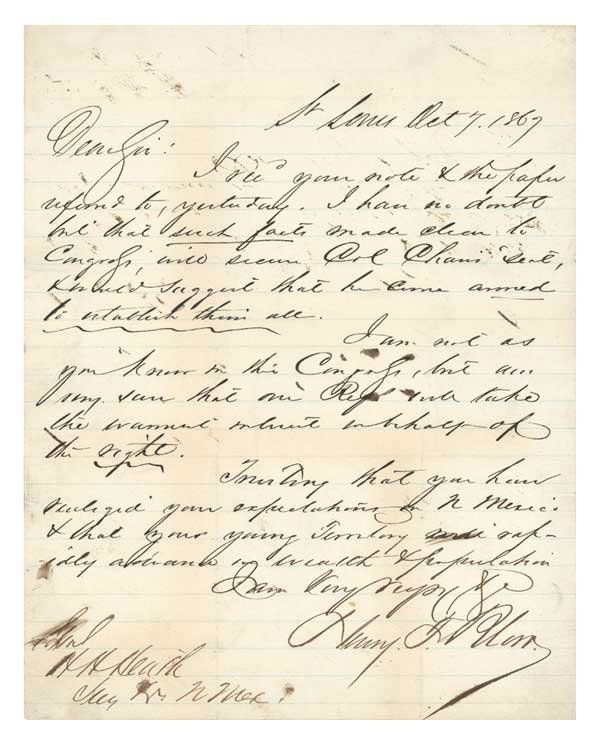 St Louis Oct 7. 1867
Dear Sir!
I rec'd your note & the paper
referd to, yesterday. I have no doubt
but that such facts made clear to
Congress, will secure Col Chaves seat,
& would suggest that he come armed
to establish them all.
I am not as
you know in this Congress, but am
very sure that our Reps will take
the warmest interest in behalf of
the right.
Trusting that you have
realized your expectations in N Mexico
& that your young Territory will rap-
idly advance in wealth & population
I am Very respy &c
Henry T. Blow.
H H Heath
Secy &c N Mex.